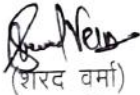 (शरद वर्मा)